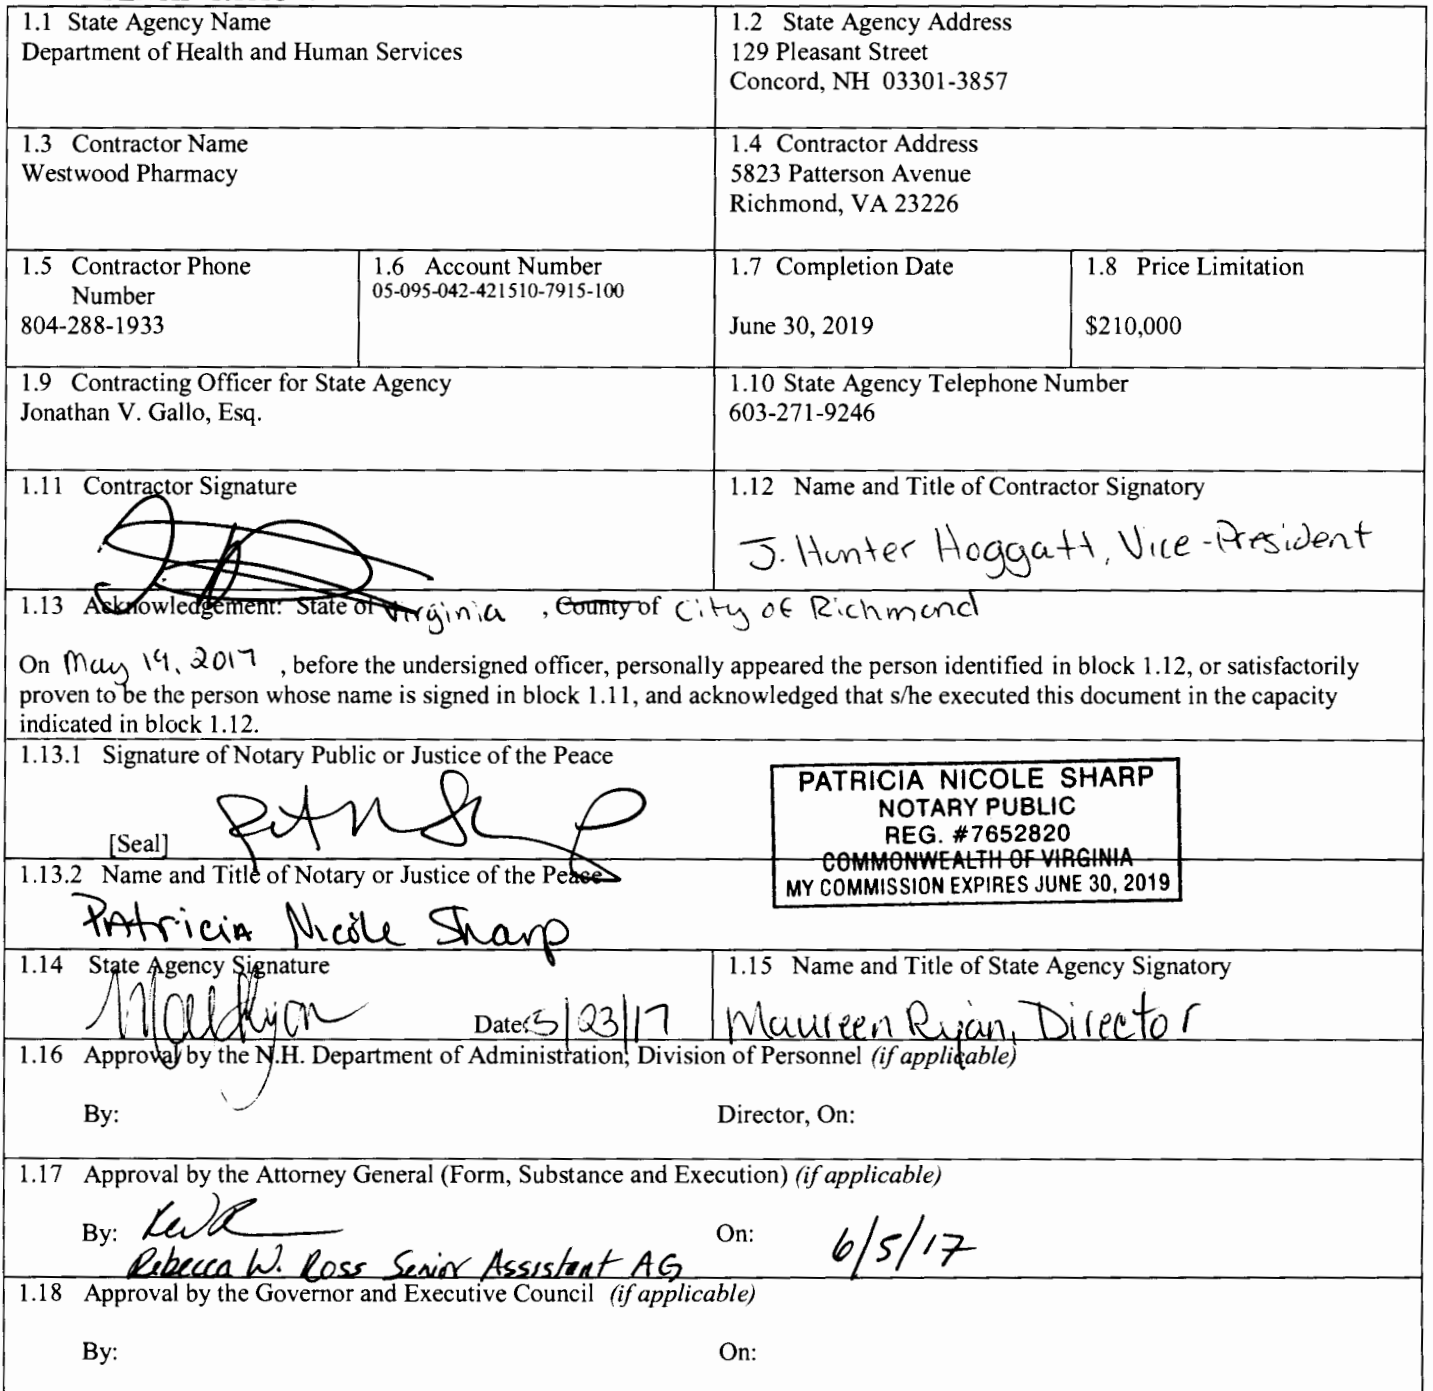 1.1 State Agency Name
Department of Health and Human Services
1.2 State Agency Address
129 Pleasant Street
Concord, NH 03301-3857
1.3 Contractor Name
Westwood Pharmacy
1.4 Contractor Address
5823 Patterson Avenue
Richmond, VA 23226
1.5 Contractor Phone
Number
804-288-1933
1.6 Account Number
05-095-042-421510-7915-100
1.7 Completion Date
June 30, 2019
1.8 Price Limitation
$210,000
1.9 Contracting Officer for State Agency
Jonathan V. Gallo, Esq.
1.10 State Agency Telephone Number
603-271-9246
1.11 Contractor Signature
1.12 Name and Title of Contractor Signatory
J. Hunter Hoggatt, Vice-President
1.13 Acknowledgement: State of Virginia , County of City of Richmond
On May 19, 2017 , before the undersigned officer, personally appeared the person identified in block 1.12, or satisfactorily
proven to be the person whose name is signed in block 1.11, and acknowledged that s/he executed this document in the capacity
indicated in block 1.12.
1.13.1 Signature of Notary Public or Justice of the Peace
[Seal]
PATRICIA NICOLE SHARP
NOTARY PUBLIC
REG. #7652820
COMMONWEALTH OF VIRGINIA
MY COMMISSION EXPIRES JUNE 30, 2019
1.13.2 Name and Title of Notary or Justice of the Peace
Patricia Nicole Sharp
1.14 State Agency Signature
Date: 5/23/17
1.15 Name and Title of State Agency Signatory
Maureen Ryan, Director
1.16 Approval by the N.H. Department of Administration, Division of Personnel (if applicable)
By:
Director, On:
1.17 Approval by the Attorney General (Form, Substance and Execution) (if applicable)
By:
Rebecca W. Ross Senior Assistant AG
On: 6/5/17
1.18 Approval by the Governor and Executive Council (if applicable)
By:
On: